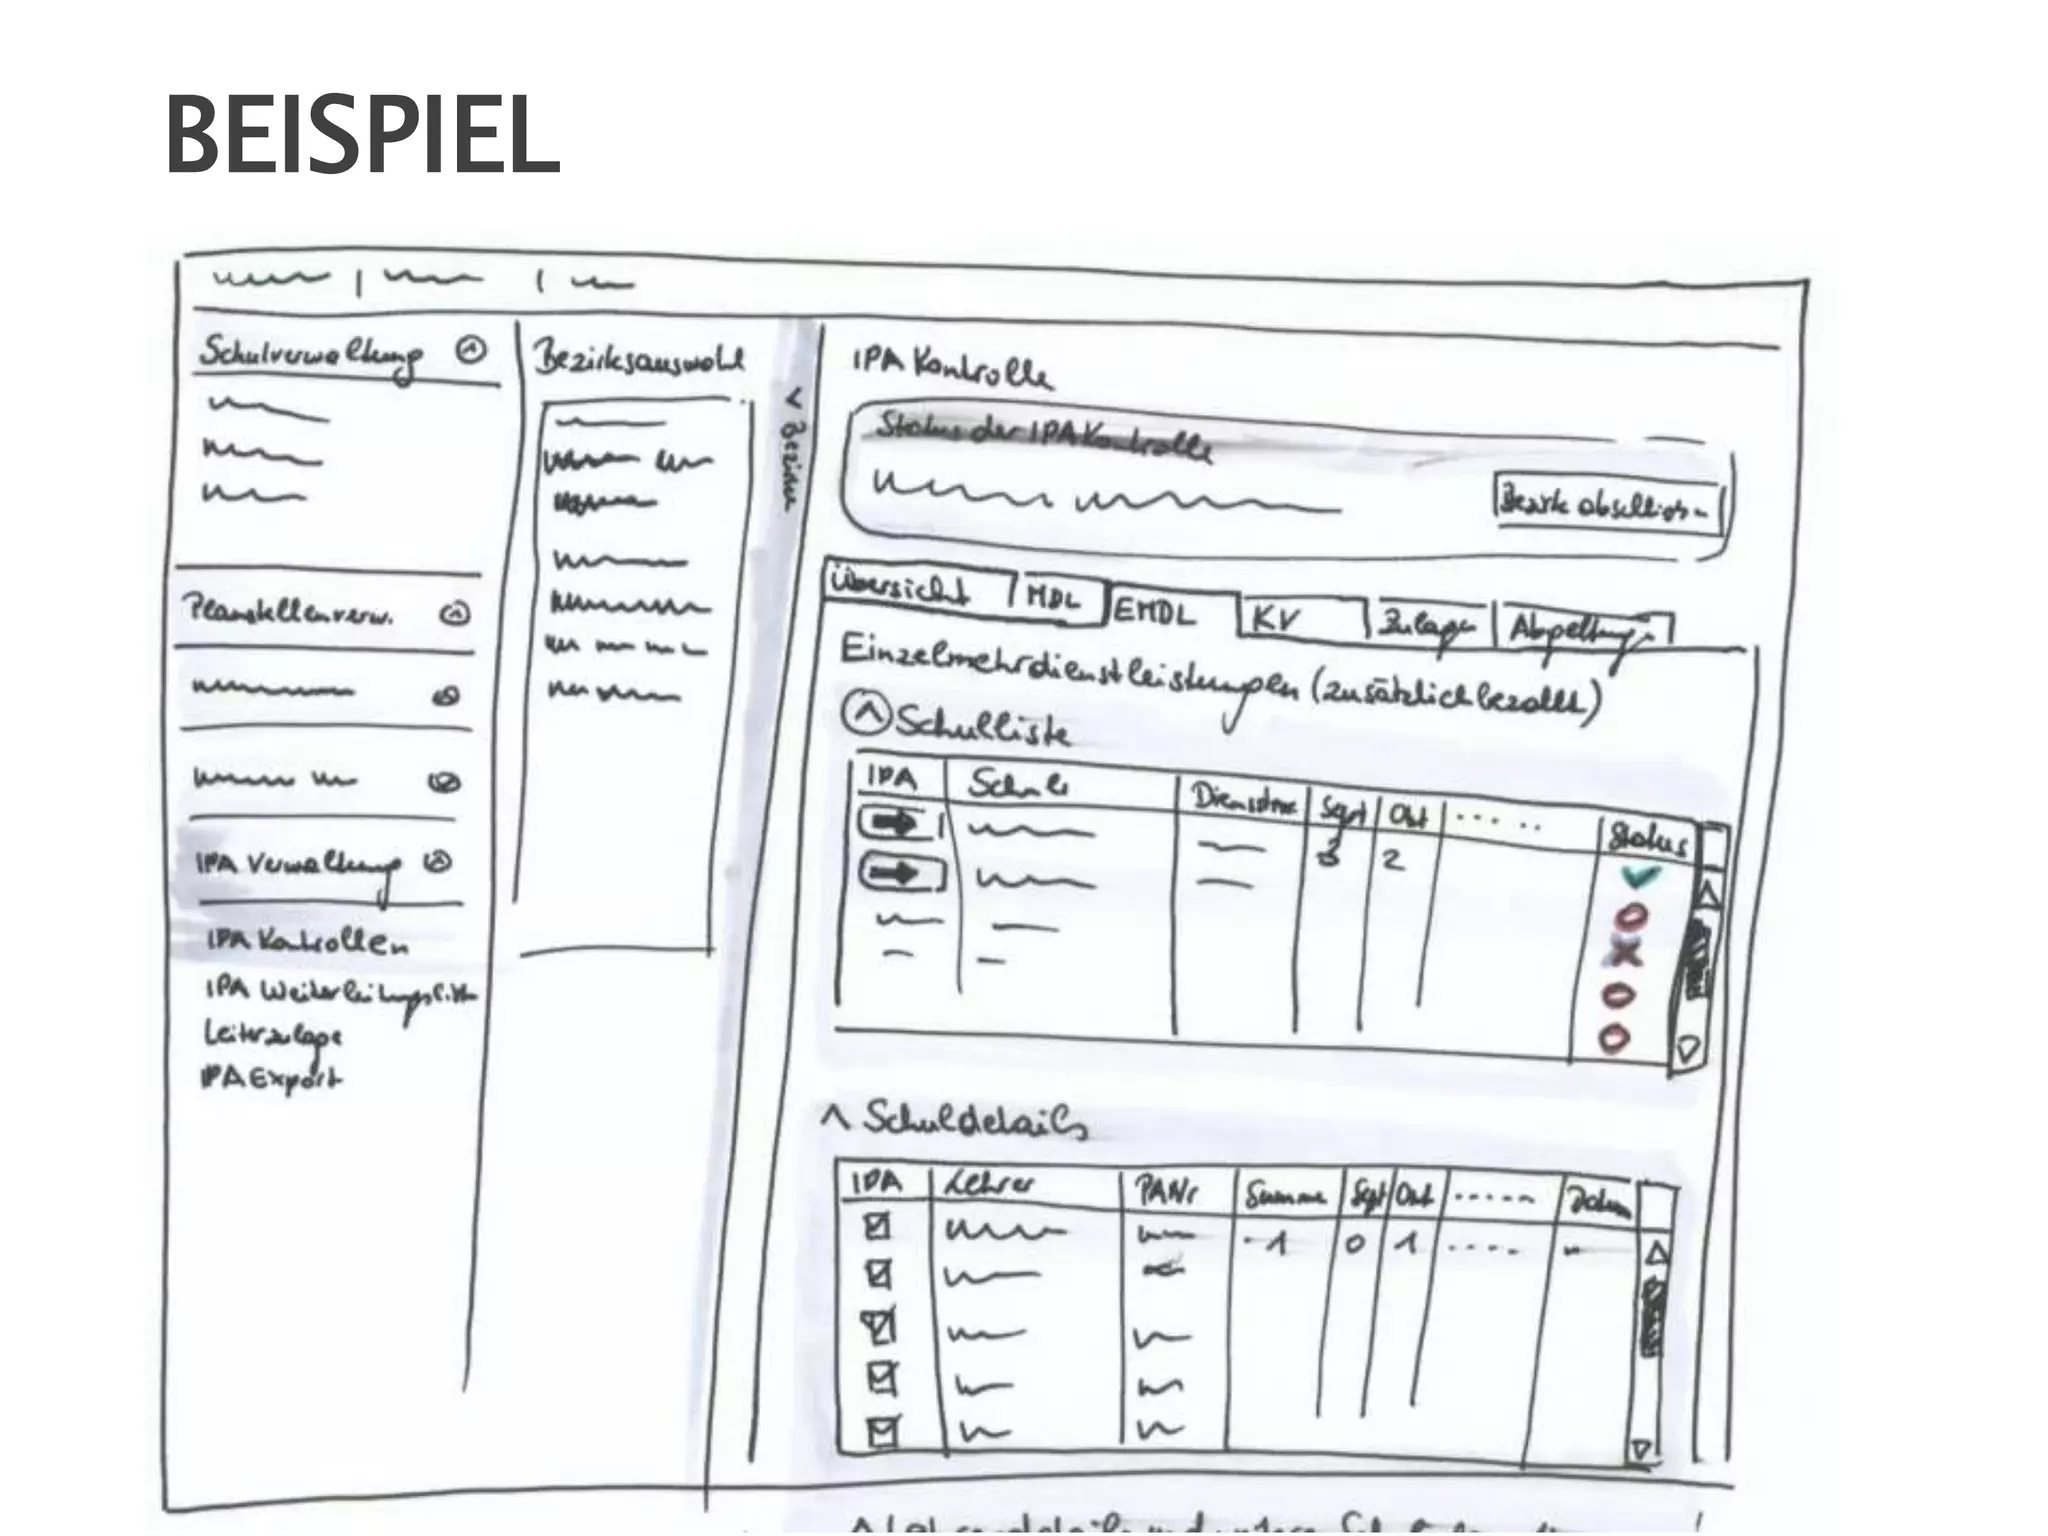 BEISPIEL
Schulverwaltung
Planstellenverw.
IPA Verwaltung
IPA Kontrollen
IPA Weiterleitungsliste
Leiterzulage
IPA Export
Bezirksauswahl
< Bezirke
IPA Kontrolle
Status der IPA Kontrolle
Bezirk abschließen
Übersicht MDL EMDL KV Zulagen
Einzelmehrdienstleistungen (zusätzlich bezahlt)
Schulliste
IPA Schule Sept Okt ..... Status
3 2
^ Schuldetails
IPA Lehrer PANr Summe Sept Okt ..... Datum
1 0 1 ....